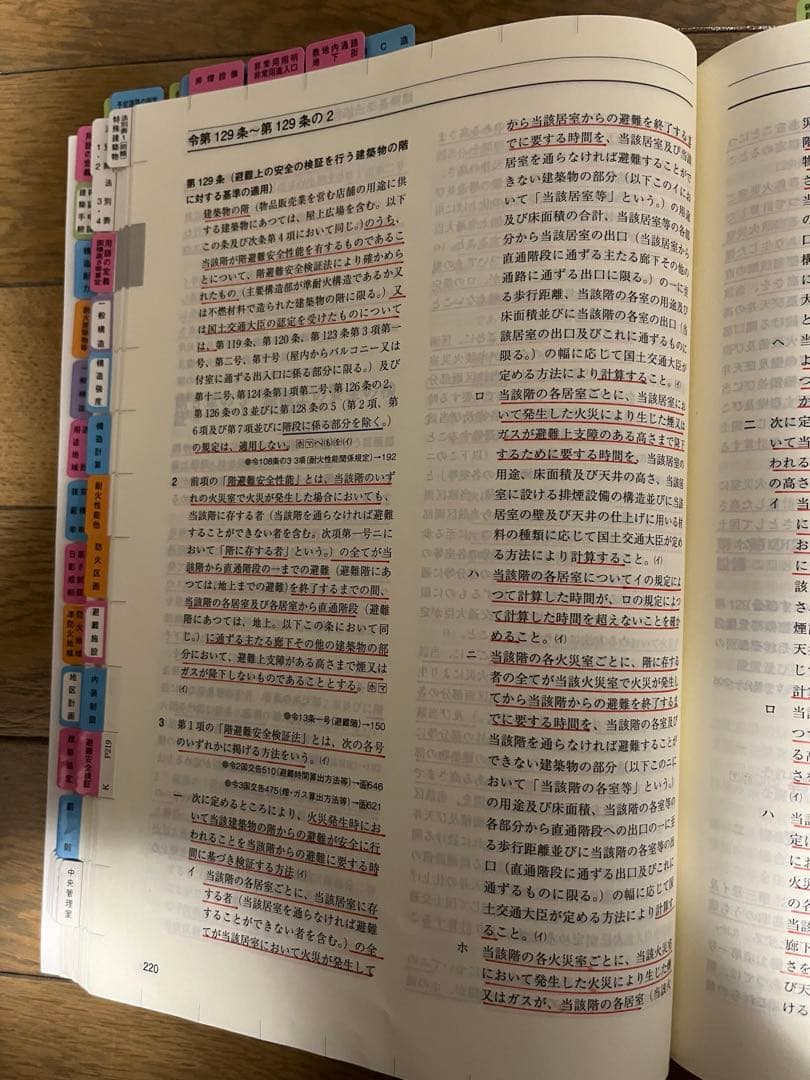 排煙設備
非常用照明
非常用進入口
敷地内通路
地下街
C造
法別表1（回転）
特殊建築物
令第129条～第129条の2
第129条（避難上の安全の検証を行う建築物の階
に対する基準の適用）
建築物の階（物品販売業を営む店舗の用途に供
する建築物にあつては、屋上広場を含む。以下
この条及び次条第4項において同じ。）のうち、
当該階が階避難安全性能を有するものであるこ
とについて、階避難安全検証法により確かめら
れたもの（主要構造部が準耐火構造であるか又
は不燃材料で造られた建築物の階に限る。）又
は国土交通大臣の認定を受けたものについて
は、第119条、第120条、第123条第3項第一
号、第二号、第十号（屋内からバルコニー又は
付室に通ずる出入口に係る部分に限る。）及び
第十二号、第124条第1項第二号、第126条の2、
第126条の3並びに第128条の5（第2項、第
6項及び第7項並びに階段に係る部分を除く。）
の規定は、適用しない。
●令108条の3 3項（耐火性能関係規定）→192
2 前項の「階避難安全性能」とは、当該階のいず
れの火災室で火災が発生した場合においても、
当該階に存する者（当該階を通らなければ避難
することができない者を含む。次項第一号ニに
おいて「階に存する者」という。）の全てが当
該階から直通階段の一までの避難（避難階にあ
つては、地上までの避難）を終了するまでの間、
当該階の各居室及び各居室から直通階段（避難
階にあつては、地上。以下この条において同
じ。）に通ずる主たる廊下その他の建築物の部
分において、避難上支障がある高さまで煙又は
ガスが降下しないものであることとする。
(イ)
●令13条一号（避難階）→150
3 第1項の「階避難安全検証法」とは、次の各号
のいずれかに掲げる方法をいう。(イ)
●令2国交告510（避難時間算出方法等）→告646
●令3国交告475（煙・ガス算出方法等）→告621
一 次に定めるところにより、火災発生時にお
いて当該建築物の階からの避難が安全に行
われることを当該階からの避難に要する時
間に基づき検証する方法(イ)
イ 当該階の各居室ごとに、当該居室に存
する者（当該居室を通らなければ避難
することができない者を含む。）の全
てが当該居室において火災が発生して
220
から当該居室からの避難を終了するま
でに要する時間を、当該居室及び当該
居室を通らなければ避難することがで
きない建築物の部分（以下このイにお
いて「当該居室等」という。）の用途
及び床面積の合計、当該居室等の各部
分から当該居室の出口（当該居室から
直通階段に通ずる主たる廊下その他の
通路に通ずる出口に限る。）の一に至
る歩行距離、当該階の各室の用途及び
床面積並びに当該階の各室の出口（当
該居室の出口及びこれに通ずるものに
限る。）の幅に応じて国土交通大臣が
定める方法により計算すること。(イ)
ロ 当該階の各居室ごとに、当該居室にお
いて発生した火災により生じた煙又は
ガスが避難上支障のある高さまで降下
するために要する時間を、当該居室の
用途、床面積及び天井の高さ、当該居
室に設ける排煙設備の構造並びに当該
居室の壁及び天井の仕上げに用いる材
料の種類に応じて国土交通大臣が定め
る方法により計算すること。(イ)
ハ 当該階の各居室についてイの規定によ
つて計算した時間が、ロの規定によつ
て計算した時間を超えないことを確か
めること。(イ)
ニ 当該階の各火災室ごとに、階に存する
者の全てが当該火災室で火災が発生し
てから当該階からの避難を終了するま
でに要する時間を、当該階の各室及び
当該階を通らなければ避難することが
できない建築物の部分（以下このニに
おいて「当該階の各室等」という。）
の用途及び床面積、当該階の各室等の
各部分から直通階段への出口の一に至
る歩行距離並びに当該階の各室等の出
口（直通階段に通ずる出口及びこれに
通ずるものに限る。）の幅に応じて国
土交通大臣が定める方法により計算す
ること。(イ)
ホ 当該階の各火災室ごとに、当該火災室
において発生した火災により生じた煙
又はガスが、当該階の各居室（当該火
用語の定義
一般構造
構造強度
構造計算
耐火性能他
防火区画
避難施設
内装制限
避難安全検証
K P219
構造耐力
用途地域
地区計画
建築協定
罰則
中央管理室